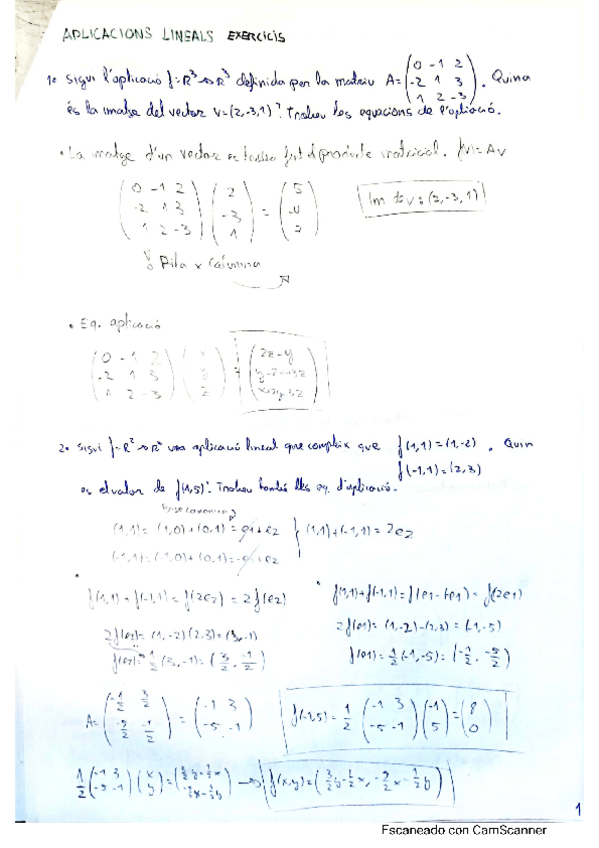 APLICACIONS LINEALS EXERCICIS
1. Sigui l'aplicació f: R³ → R³ definida per la matriu A = (0 -1 2 / -2 1 3 / 1 2 -3). Quina
és la imatge del vector v=(2,-3,1)? Trobeu les equacions de l'aplicació.
• La imatge d'un vector es troba fent el producte matricial. f(v)=Av
(0 -1 2 / -2 1 3 / 1 2 -3) (2 / -3 / 1) = (5 / -4 / 
Im de v: (2,-3,1)
Fila x columna
• Eq. aplicació
(0 -1 2 / -2 1 3 / 1 2 -3) (x / y / z) = (2z-y
2. Sigui f: R² → R² una aplicació lineal que compleix que f(1,1)=(1,-2). Quin
f(-1,1)=(2,3)
es el valor de f(1,5)? Trobeu també les eq. d'aplicació.
(1,1)=(1,0)+(0,1)=e1+e2 } (1,1)+(-1,1)=2e2
(-1,1)=(-1,0)+(0,1)=-e1+e2
f(1,1)+f(-1,1)=f(2e2)=2f(e2)
2f(e2)=(1,-2)(2,3)=(3,-1)
f(e2)=1/2(3,-1)=(3/2, -1/2)
2f(e1)=(1,-2)-(2,3)=(-1,-5)
f(e1)=1/2(-1,-5)=(-1/2, -5/2)
A=(-1/2 3/2 / -5/2 -1/2) = (-1 3 / -5 -1)
1/2 (-1 3 / -5 -1) (-1 / 5) = (8 / 0)
1/2 (-1 3 / -5 -1) (x / y) =
1
Escaneado con CamScanner